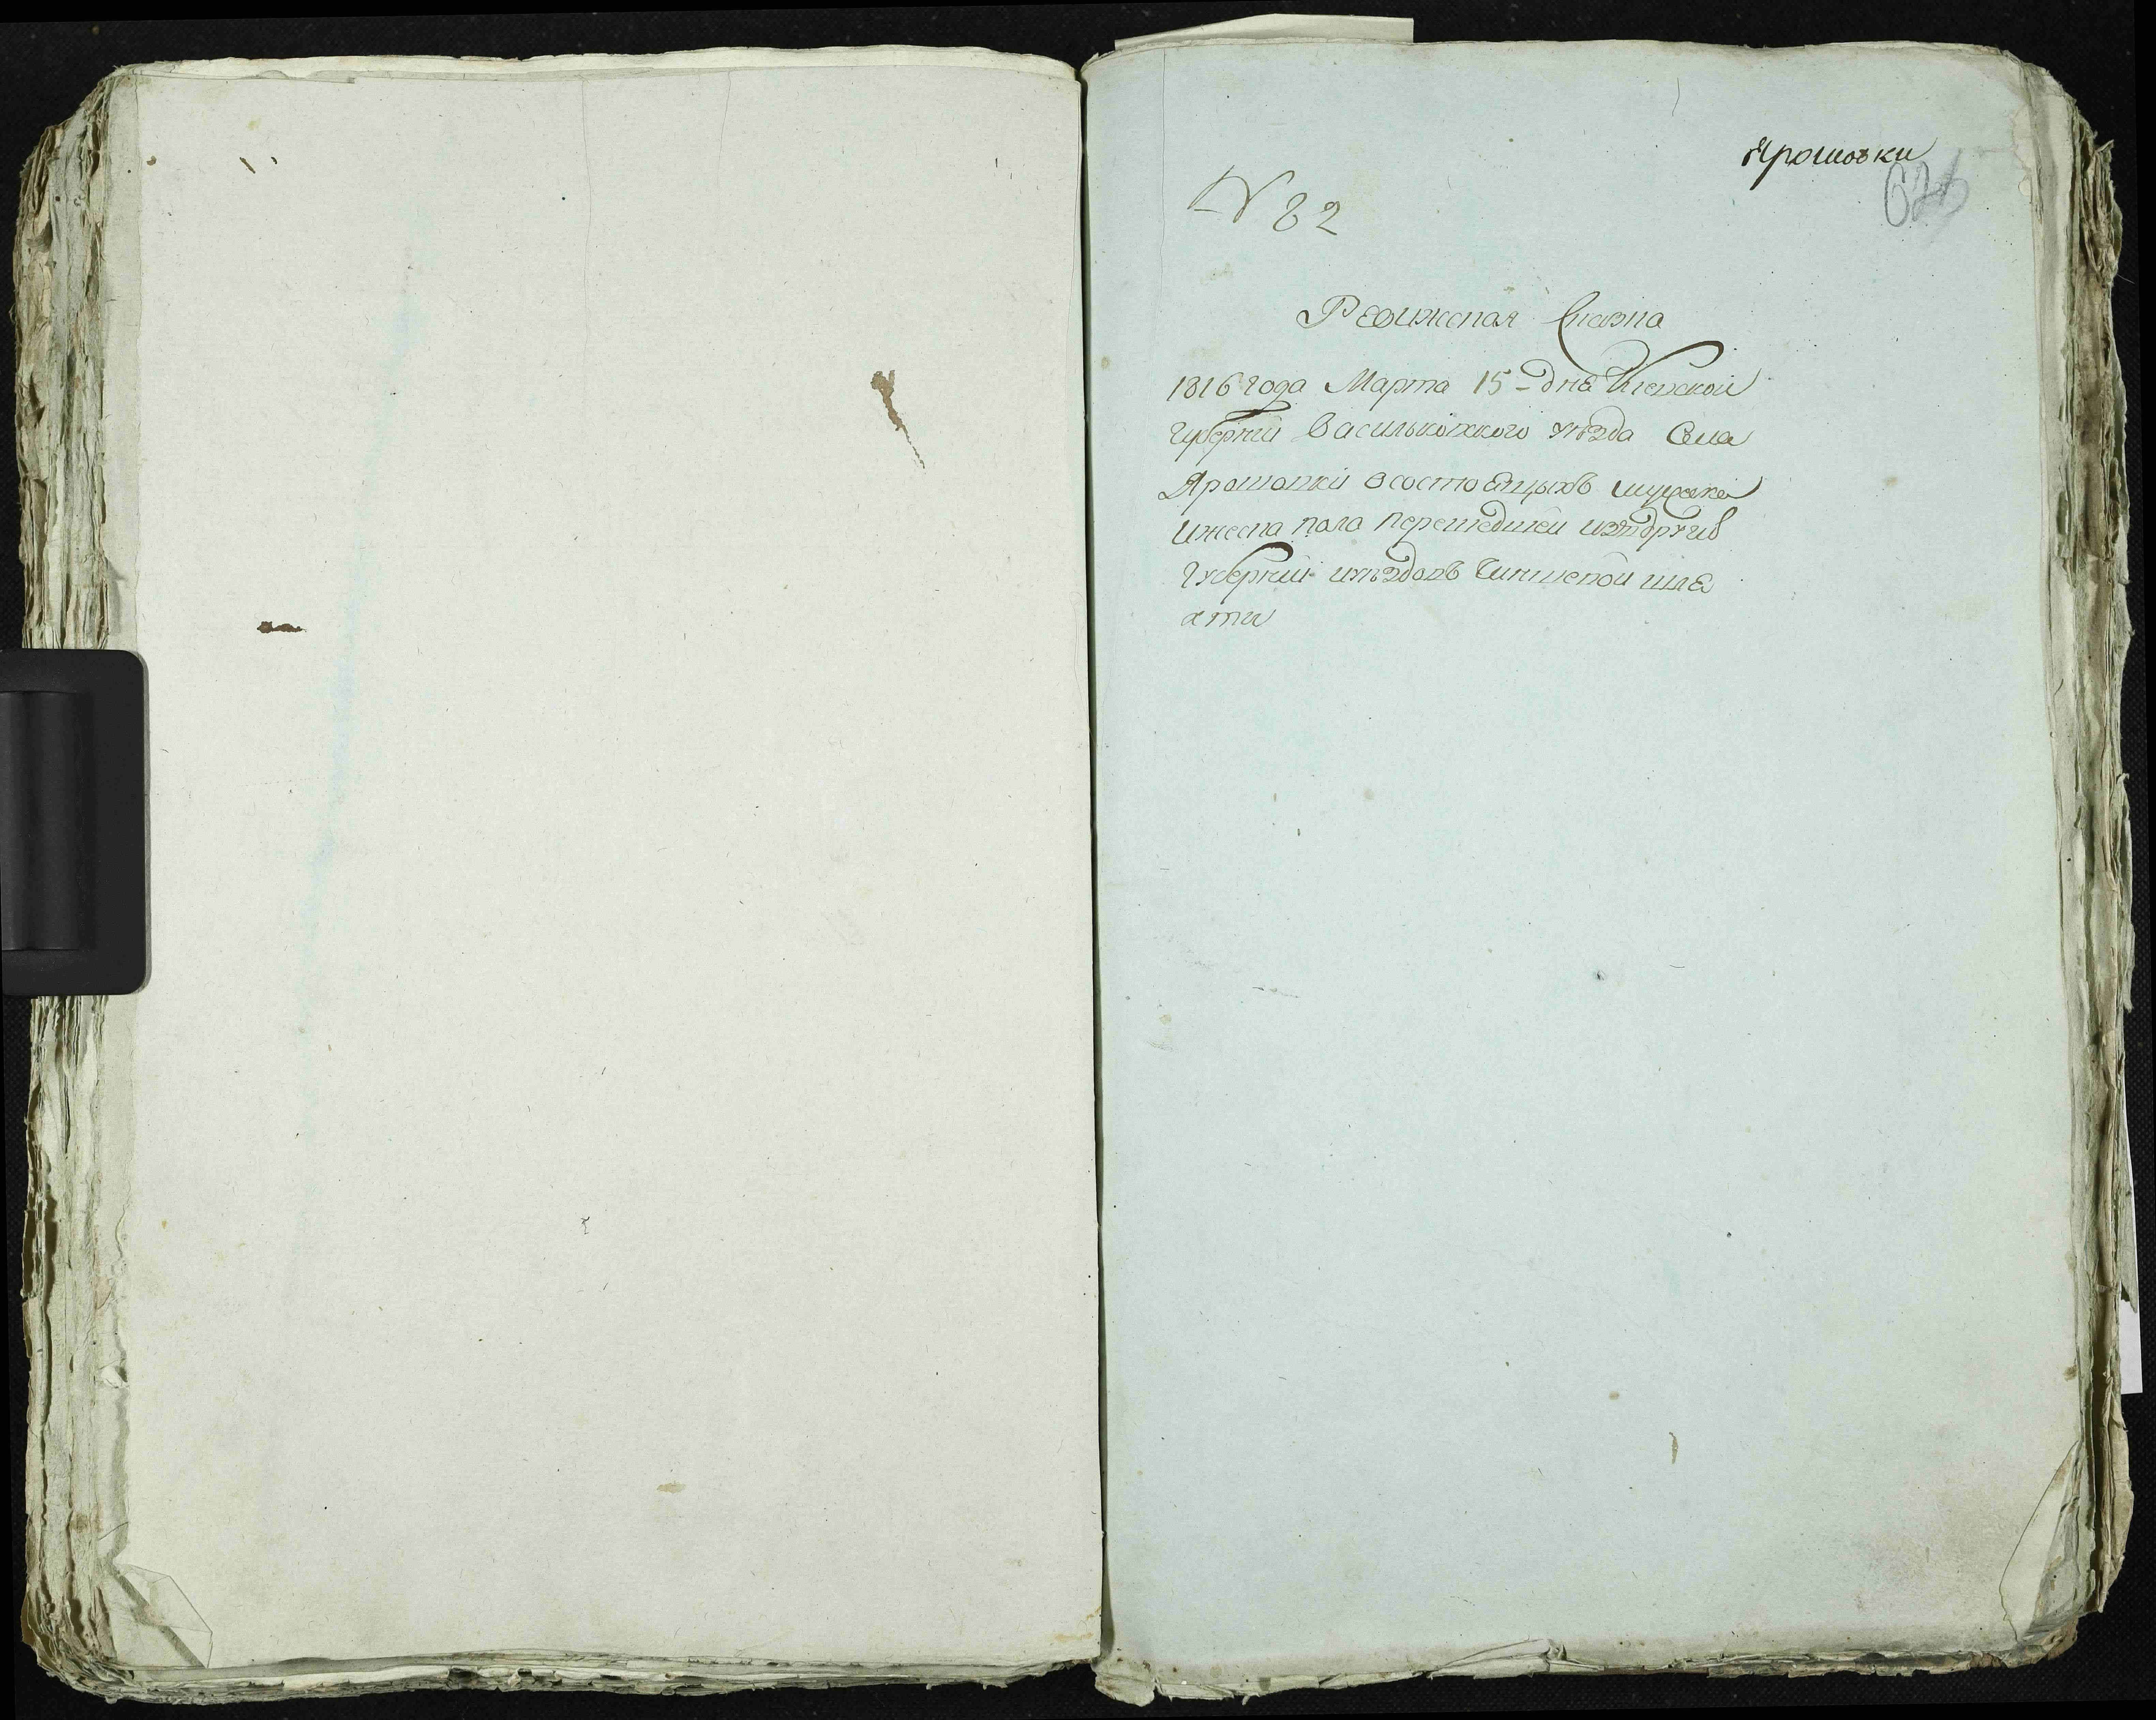 Ярошовки
№ 82
Ревижская Сказка
1816 года Марта 15 дня Киевской
Губернии Васильковского уезда Села
Ярошовки о состоящихъ мужеска
и женска пола перешедшей изъ других
Губерний и уездовъ Чиншевой шля
хти